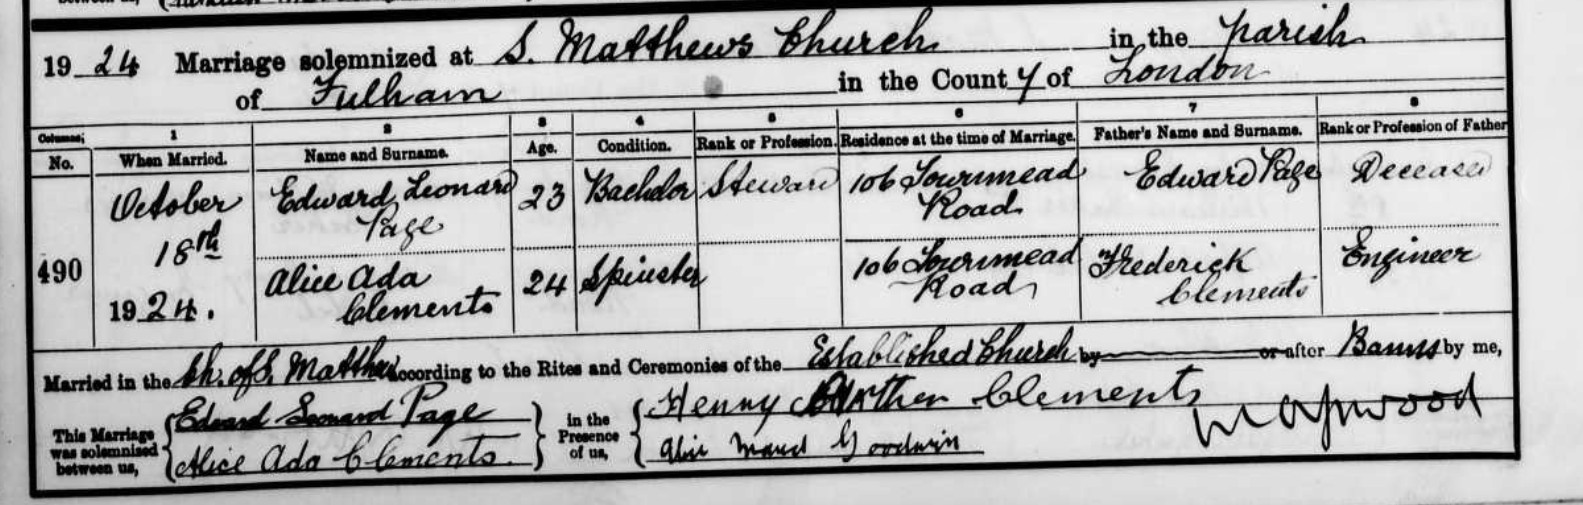 1924 Marriage solemnized at S. Matthews Church in the parish
of Fulham in the County of London
Columns; 1 2 3 4 5 6 7 8
No. When Married. Name and Surname. Age. Condition. Rank or Profession. Residence at the time of Marriage. Father's Name and Surname. Rank or Profession of Father
490 October 18th 1924. Edward Leonard Page 23 Bachelor Steward 106 Townmead Road Edward Page Deceased
Alice Ada Clements 24 Spinster 106 Townmead Road Frederick Clements Engineer
Married in the Ch. of S. Matthew according to the Rites and Ceremonies of the Established Church by or after Banns by me,
This Marriage was solemnized between us, Edward Leonard Page in the Presence of us, Henry Clements
Alice Ada Clements Alice Maud Goodwin